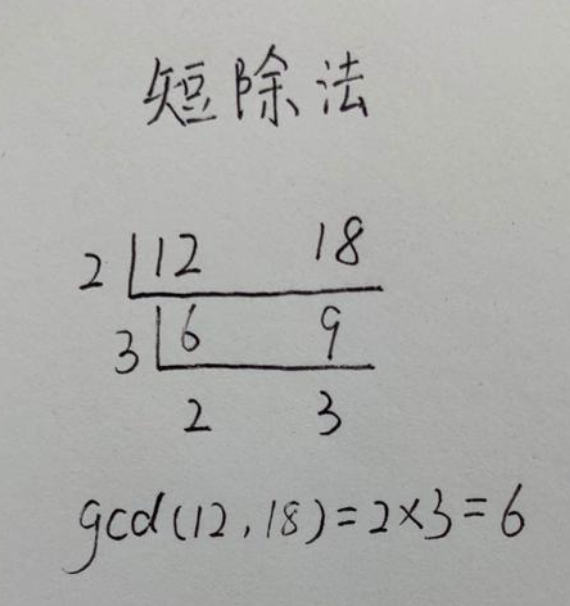 短除法
2 12 18
3 6 9
2 3
gcd(12,18)=2×3=6